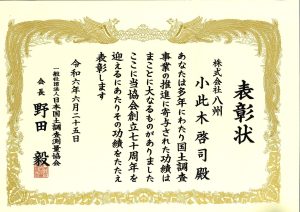 表彰状
株式会社八州
小此木啓司殿
あなたは多年にわたり国土調査
事業の推進に寄与された功績は
まことに大なるものがありました
ここに当協会創立七十周年を
迎えるにあたりその功績をたたえ
表彰します
令和六年六月二十五日
一般社団法人日本国土調査測量協会
会長 野田毅